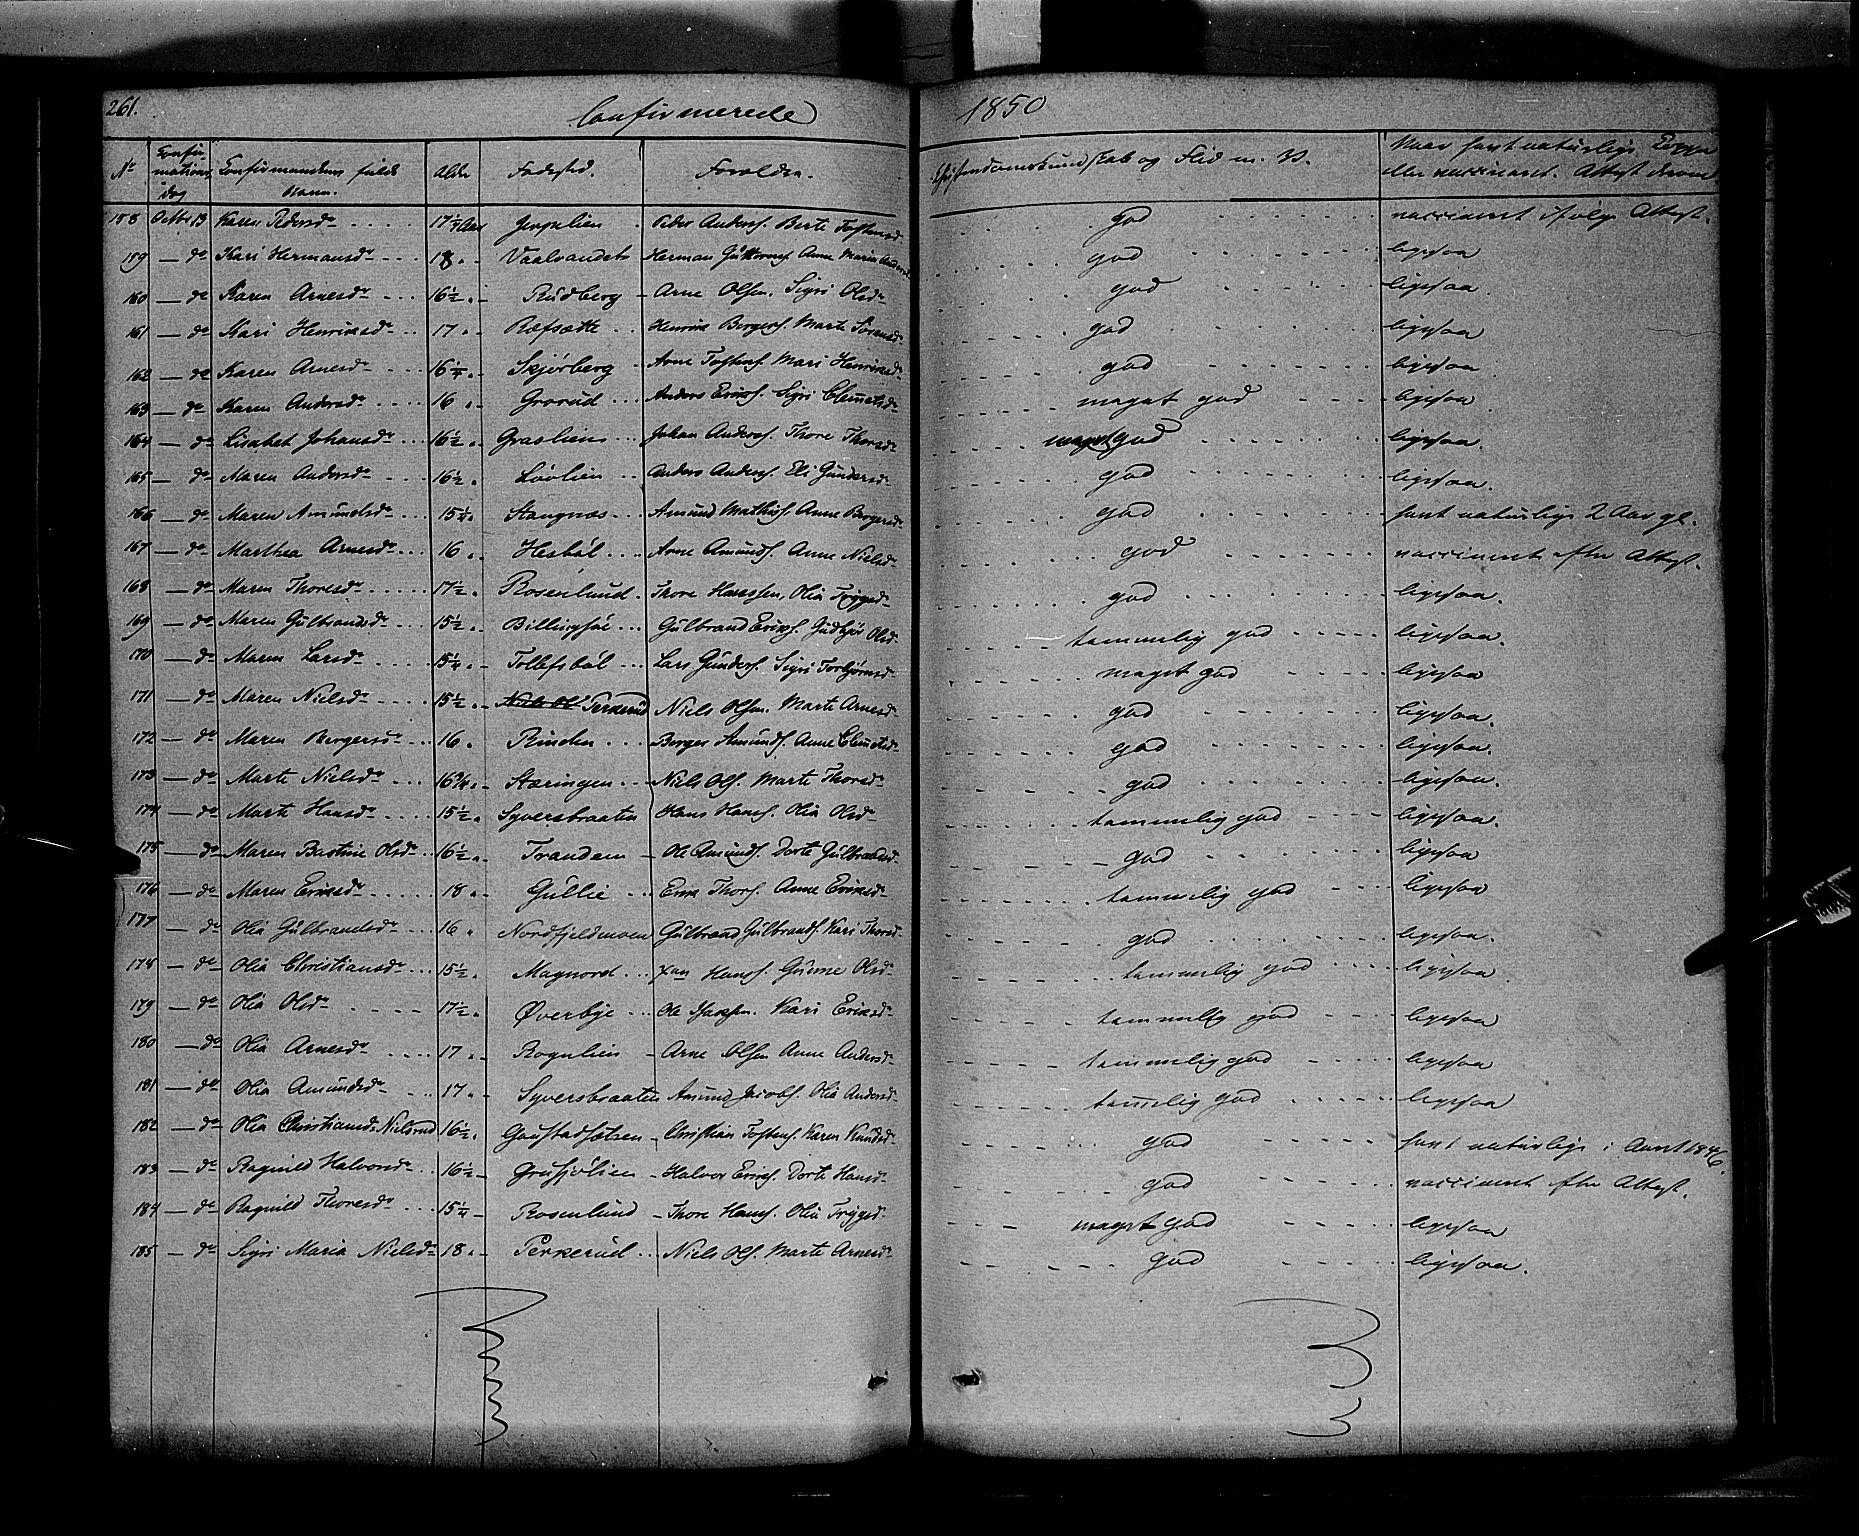 261. Confirmerede 1850
No Confirmations Dag Confirmandens fulde Navn. Alder Fødested. Forældre. Christendomskundskab og Flid m. V. Naar havt naturlige Kopper eller vaccineret. Attest derom
158 Octbr 13 Karen Pedersd. 17 1/2 Aar Jenselien Peder Anders. Berte Tostensd god vaccineret ifølge Attest.
159 — do Kari Hermansd. 18 Vaalvandet Herman Guttorms Anne Maria god ligesaa
160 — do Karen Arnesd. 16 1/2 Rudberg Arne Olsen. Sigri Olsd. god ligesaa
161 — do Kari Henriksd. 17 Refsætte Henrik Bergers. Marte god ligesaa
162 — do Karen Arnesd. 16 1/4 Skjørberg Arne Tostens. Mari Henriksd. god ligesaa
163 — do Karen Andersd. 16 Grorud Anders Eriks. Sigri Clemetsd. meget god ligesaa
164 — do Lisabet Johansd. 16 1/2 Graalien Johan Anders. Thore Thorsd. meget god ligesaa.
165 — do Maren Andersd. 16 1/2 Løvlien Anders Anders. Eli Gundersd. god ligesaa.
166 — do Maren Amundsd. 15 1/4 Stangnæs Amund Mathis. Anne Bergersd. god havt naturlige 2 Aar gl.
167 — do Marthea Arnesd. 16 Hesbøl Arne Amunds. Anne Nielsd. god vaccineret efter Attest.
168 — do Maren Thoresd. 17 1/2 Rosenlund Thore Hanssen, Olia Trygsd. god ligesaa.
169 — do Maren Gulbrandsd. 15 1/2 Gulbrand Eriks. Gudbjør Olsd. temmelig god ligesaa.
170 — do Maren Larsd. 15 1/4 Tollefsbøl Lars Gunders. Sigri Torbjørnsd. meget god ligesaa
171 — do Maren Nielsd. 15 1/2 Perkerud Niels Olsen. Marte Arnesd. god ligesaa.
172 — do Maren Bergersd. 16 Rinden Berger Amunds. Anne Clemetsd. god ligesaa.
173 — do Marte Nielsd. 16 3/4 Stæringen Niels Ols. Marte Thorsd. god ligesaa.
174 — do Marte Hansd. 15 1/2 Syversbraaten Hans Hans. Olia Olsd. temmelig god ligesaa.
175 — do Maren Bastine Olsd. 16 1/2 Trandem Ole Amunds. Dorte Gulbrandsd. god ligesaa
176 — do Maren Eriksd. 18 Gullie Erik Thors. Anne Eriksd. temmelig god ligesaa
177 — do Olia Gulbrandsd. 16 Nordfjeldmoen Gulbrand Gulbrands. Kari Thorsd. god ligesaa.
178 — do Olia Christiansd. 15 1/2 Magnord Hans. Gunne Olsd. temmelig god ligesaa
179 — do Olia Olsd. 17 1/2 Øverbye Ole Kari Eriksd. temmelig god ligesaa
180 — do Olia Arnesd. 17 Rognlien Arne Olsen Anne Andersd. temmelig god ligesaa
181 — do Olia Amundsd. 17 Syversbraaten Amund Jacobs. Olia Andersd. temelig god ligesaa
182 — do Olia Christiansd. Nielsrud 16 1/2 Christian Tostens. Karen Knudsd. god havt naturlige i Aaret 1846.
183 — do Ragnild Halvorsd. 16 1/2 Halvor Eriks. Dorte Hansd. god vaccineret efter Attest.
184 — do Ragnild Thoresd. 15 1/4 Rosenlund Thore Hans. Olia Trygsd. meget god ligesaa
185 — do Sigri Maria Nielsd. 18 Perkerud Niels Ols. Marte Arnesd. god ligesaa.